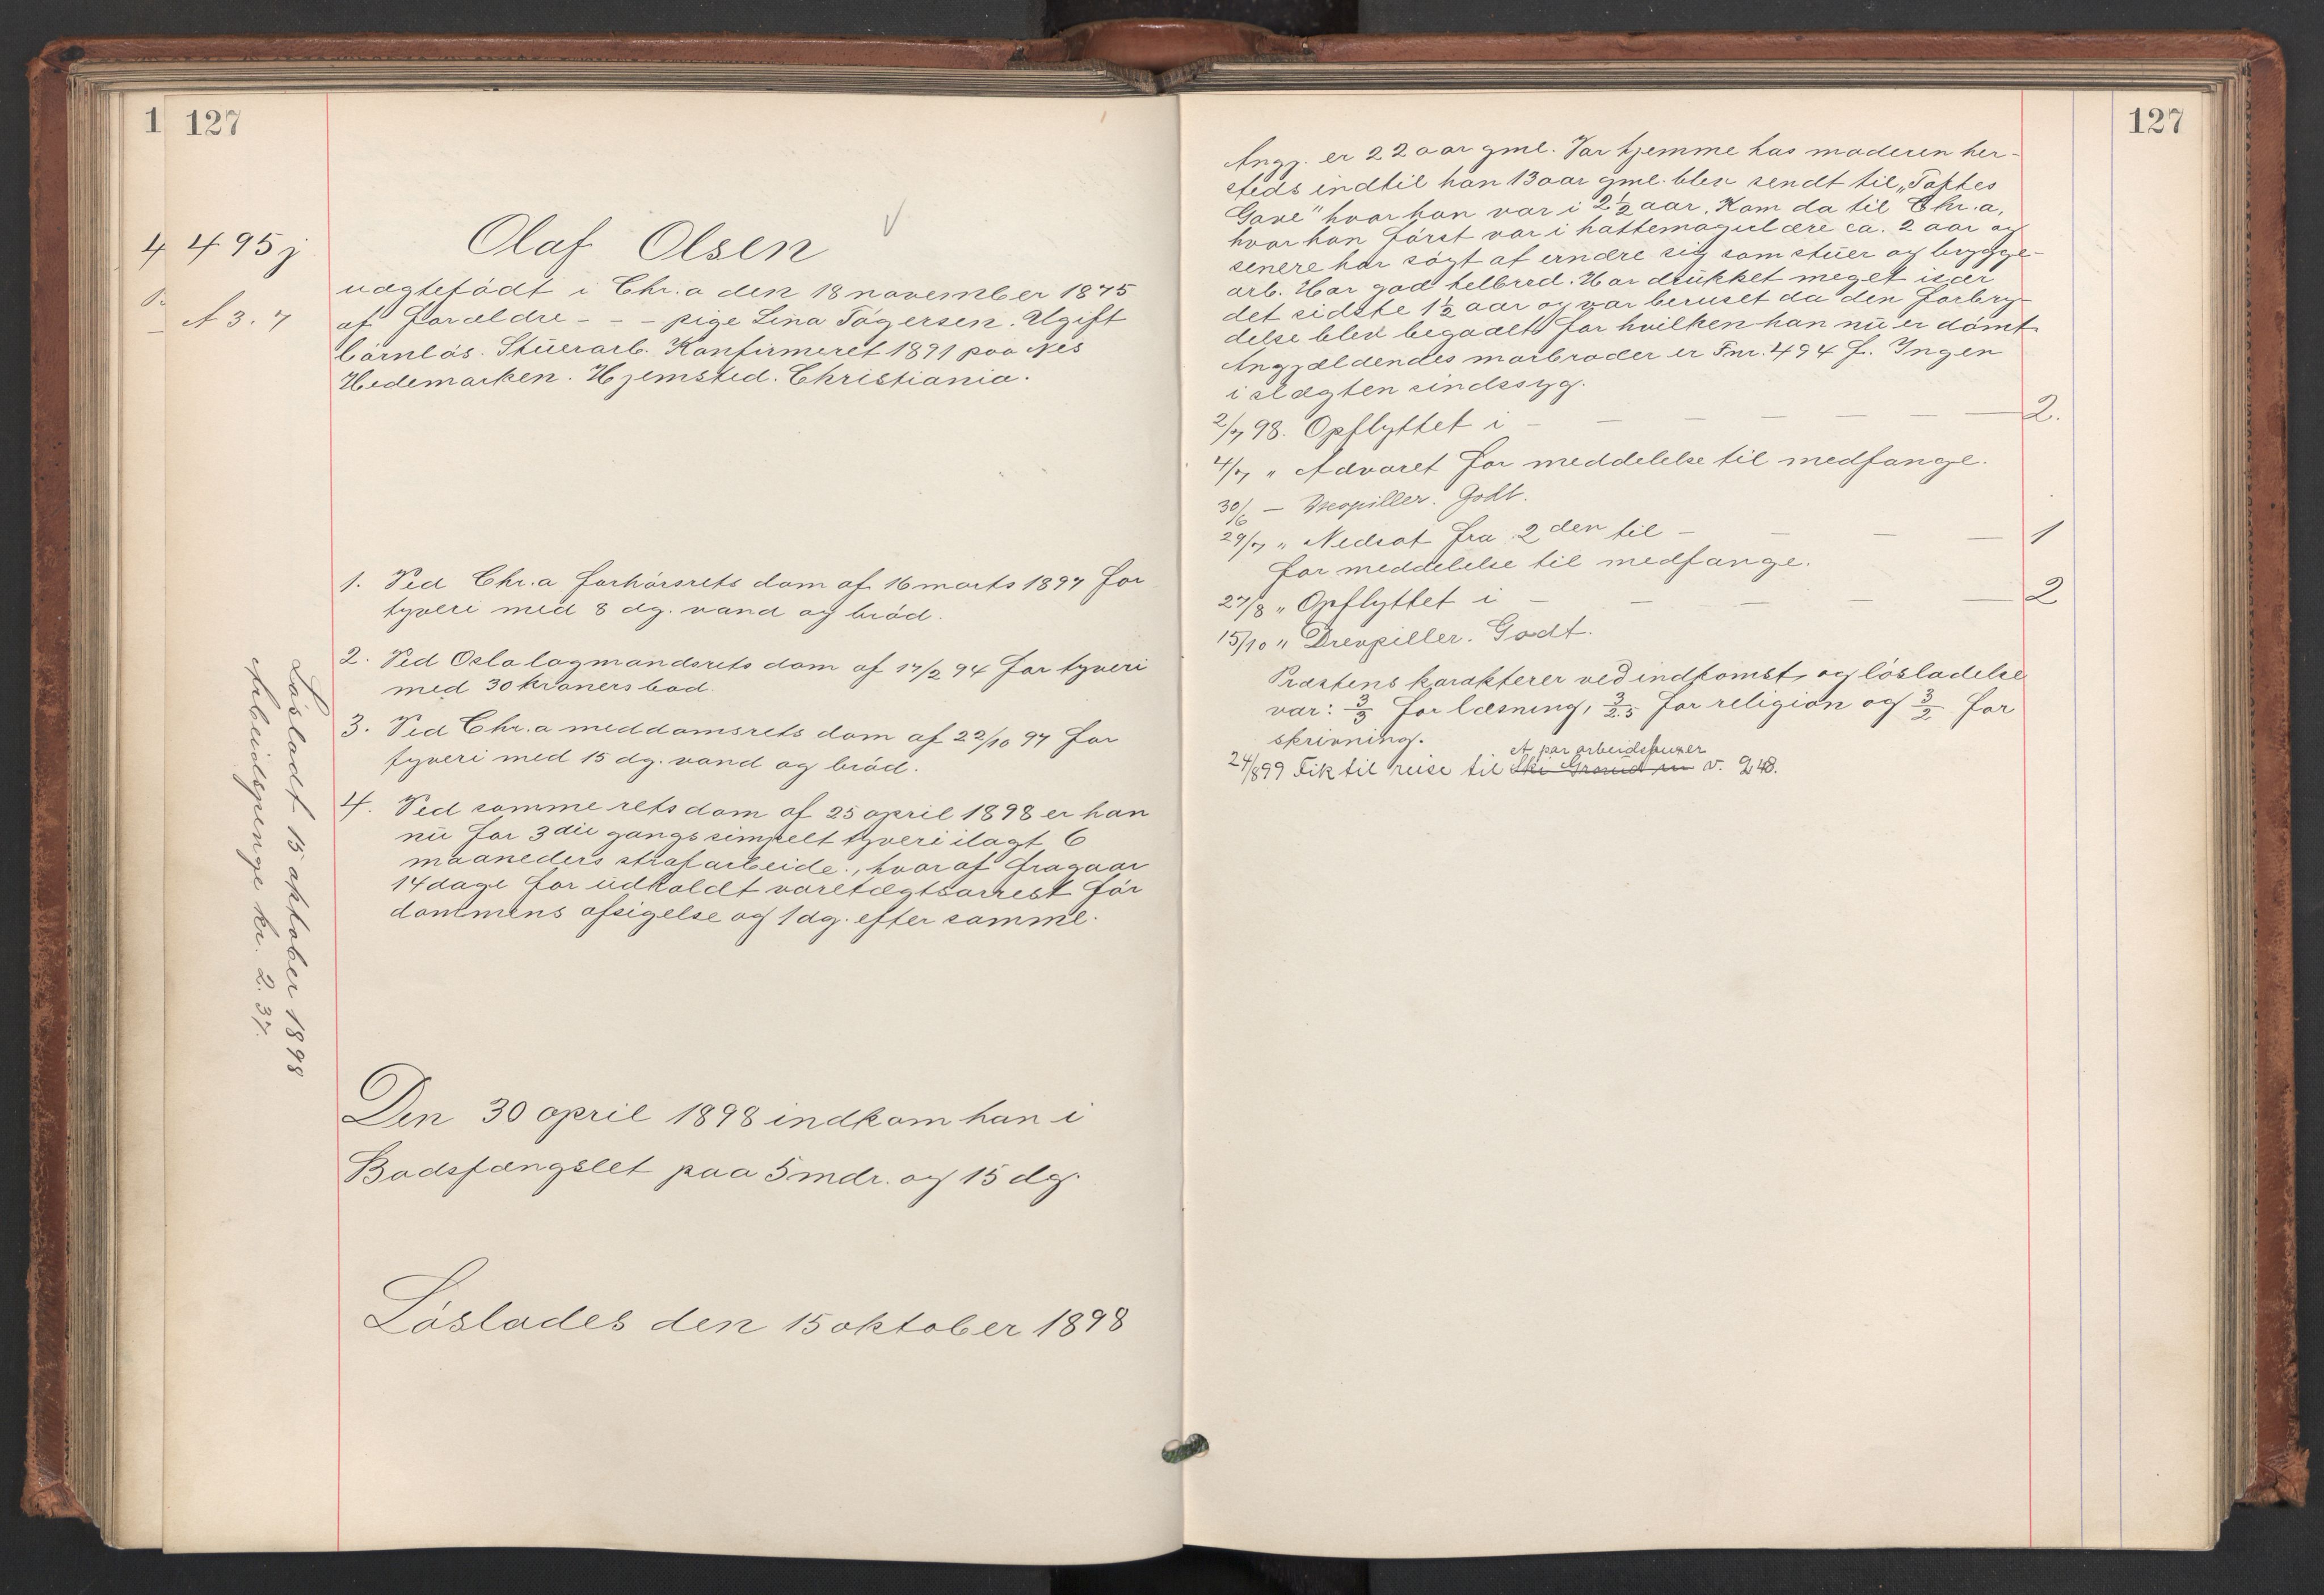 1 127
4 495 j
A 3. 7
Olaf Olsen
uægtefödt i Chr.a den 18 november 1875
af Forældre - - - pige Lina Tögersen. Ugift
börnlös. Stuerarb. Konfirmeret 1891 paa Nes
Hedemarken. Hjemsted. Christiania.
1. Ved Chr.a forhörsrets dom af 16 marts 1897 for
tyveri med 8 dg. vand og bröd.
2. Ved Oslo lagmandsrets dom af 17/2 94 for tyveri
med 30 kroners bod.
3. Ved Chr.a meddomsrets dom af 22/10 97 for
tyveri med 15 dg. vand og bröd.
4. Ved samme rets dom af 25 april 1898 er han
nu for 3die gangs simpelt tyveri ilagt 6
maaneders strafarbeide, hvoraf fragaar
14 dage for udholdt varetægtsarrest för
dommens afsigelse og 1 dg. efter samme.
Lösladt 15 oktober 1898
Arbeidspenge kr. 2.37.
Den 30 april 1898 indkom han i
Bodsfængslet paa 5 mdr. og 15 dg.
Löslades den 15 oktober 1898
127
Angj. er 22 aar gml. Var hjemme hos moderen her-
steds indtil han 13 aar gml. blev sendt til „Toftes
Gave" hvor han var i 2 1/2 aar. Kom da til Chr.a,
hvor han först var i hattemagerlære ca. 2 aar og
senere har sögt at ernære sig som stuer og brygge-
arb. Har god helbred. Har drukket meget især
det sidste 1 1/2 aar og var beruset da den forbry-
delse blev begaaet for hvilken han nu er dömt.
Angjældendes morbroder er Fnr. 494 f. Ingen
i slægten sindssyg.
2/7 98. Opflyttet i - - - - - - 2.
4/7 " Advaret for meddelelse til medfange.
30/6 — Drevpiller. Godt.
29/7 " Nedsat fra 2den til - - - - 1
for meddelelse til medfange.
27/8 " Opflyttet i - - - - - 2
15/10 " Drevpiller. Godt.
Præstens karakterer ved indkomst og lösladelse
var: 3/3 for læsning, 3/2.5 for religion og 3/2 for
skrivning.
et par arbeidsbuxer
24/8 99 Fik til reise til Ski v. 248.